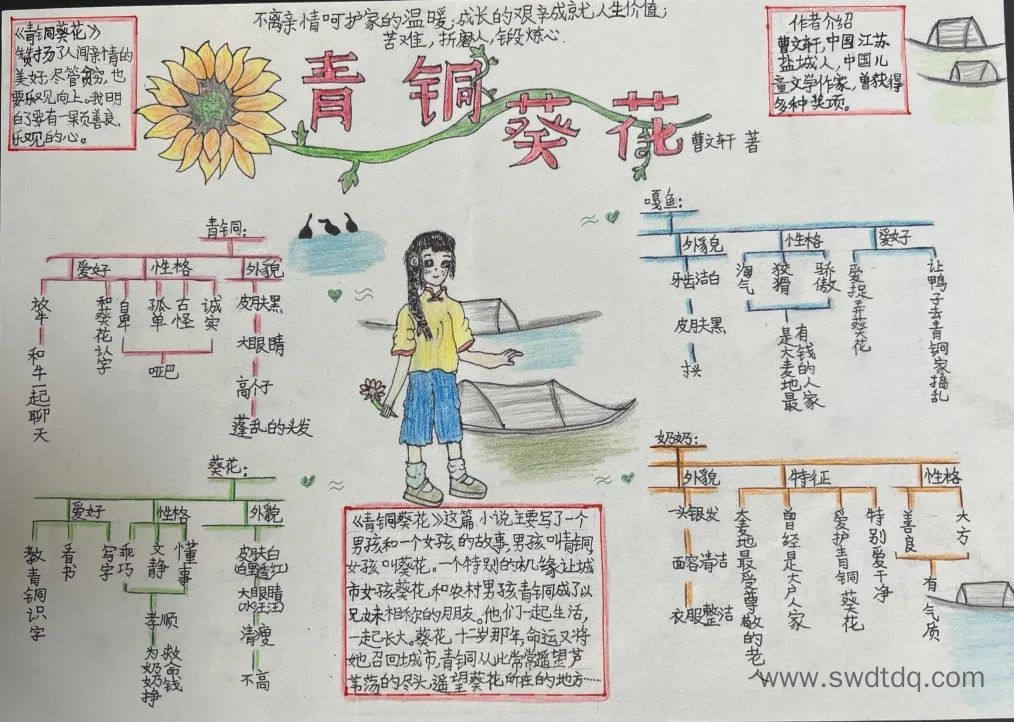 不离亲情呵护家的温暖;成长的艰辛成就人生价值;
苦难,折磨人,锻炼心.
《青铜葵花》
赞扬了人间亲情的
美好,尽管贫穷,也
要乐观向上。我明
白了要有一果多善良、
乐观的心。
青铜葵花
曹文轩 著
作者介绍
曹文轩,中国江苏
盐城人,中国儿
童文学作家,曾获得
多种奖项。
青铜:
爱好
放牛
和牛一起聊天
和葵花认字
性格
自卑
孤单
古怪
诚实
哑巴
外貌
皮肤黑
大眼睛
高个子
蓬乱的头发
嘎鱼:
外貌
牙齿洁白
皮肤黑
性格
淘气
狡猾
骄傲
是大麦地最
有钱的人家
爱好
爱捉弄葵花
让鸭子去青铜家捣乱
葵花:
爱好
教青铜识字
看书
写字
性格
乖巧
文静
懂事
孝顺
为奶奶挣
救命钱
外貌
皮肤白
白里透红
大眼睛
水汪汪
清瘦
不高
奶奶:
外貌
一头银发
面容清洁
衣服整洁
特征
大麦地最受尊敬的老人
曾经是大户人家
爱护青铜葵花
特别爱干净
性格
善良
大方
有气质
《青铜葵花》这篇小说主要写了一个
男孩和一个女孩的故事,男孩叫青铜
女孩叫葵花。一个特别的机缘让城
市女孩葵花和农村男孩青铜成了以
兄妹相称的朋友。他们一起生活,
一起长大。葵花十二岁那年,命运又将
她召回城市,青铜从此常常遥望芦
苇荡的尽头,遥望葵花所在的地方……
www.swdtdq.com